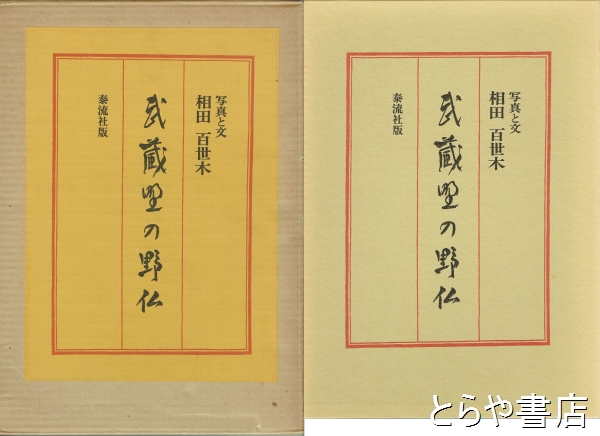 写真と文
相田 百世木
武蔵埜の野仏
泰流社版
写真と文
相田 百世木
武蔵埜の野仏
泰流社版
とらや書店